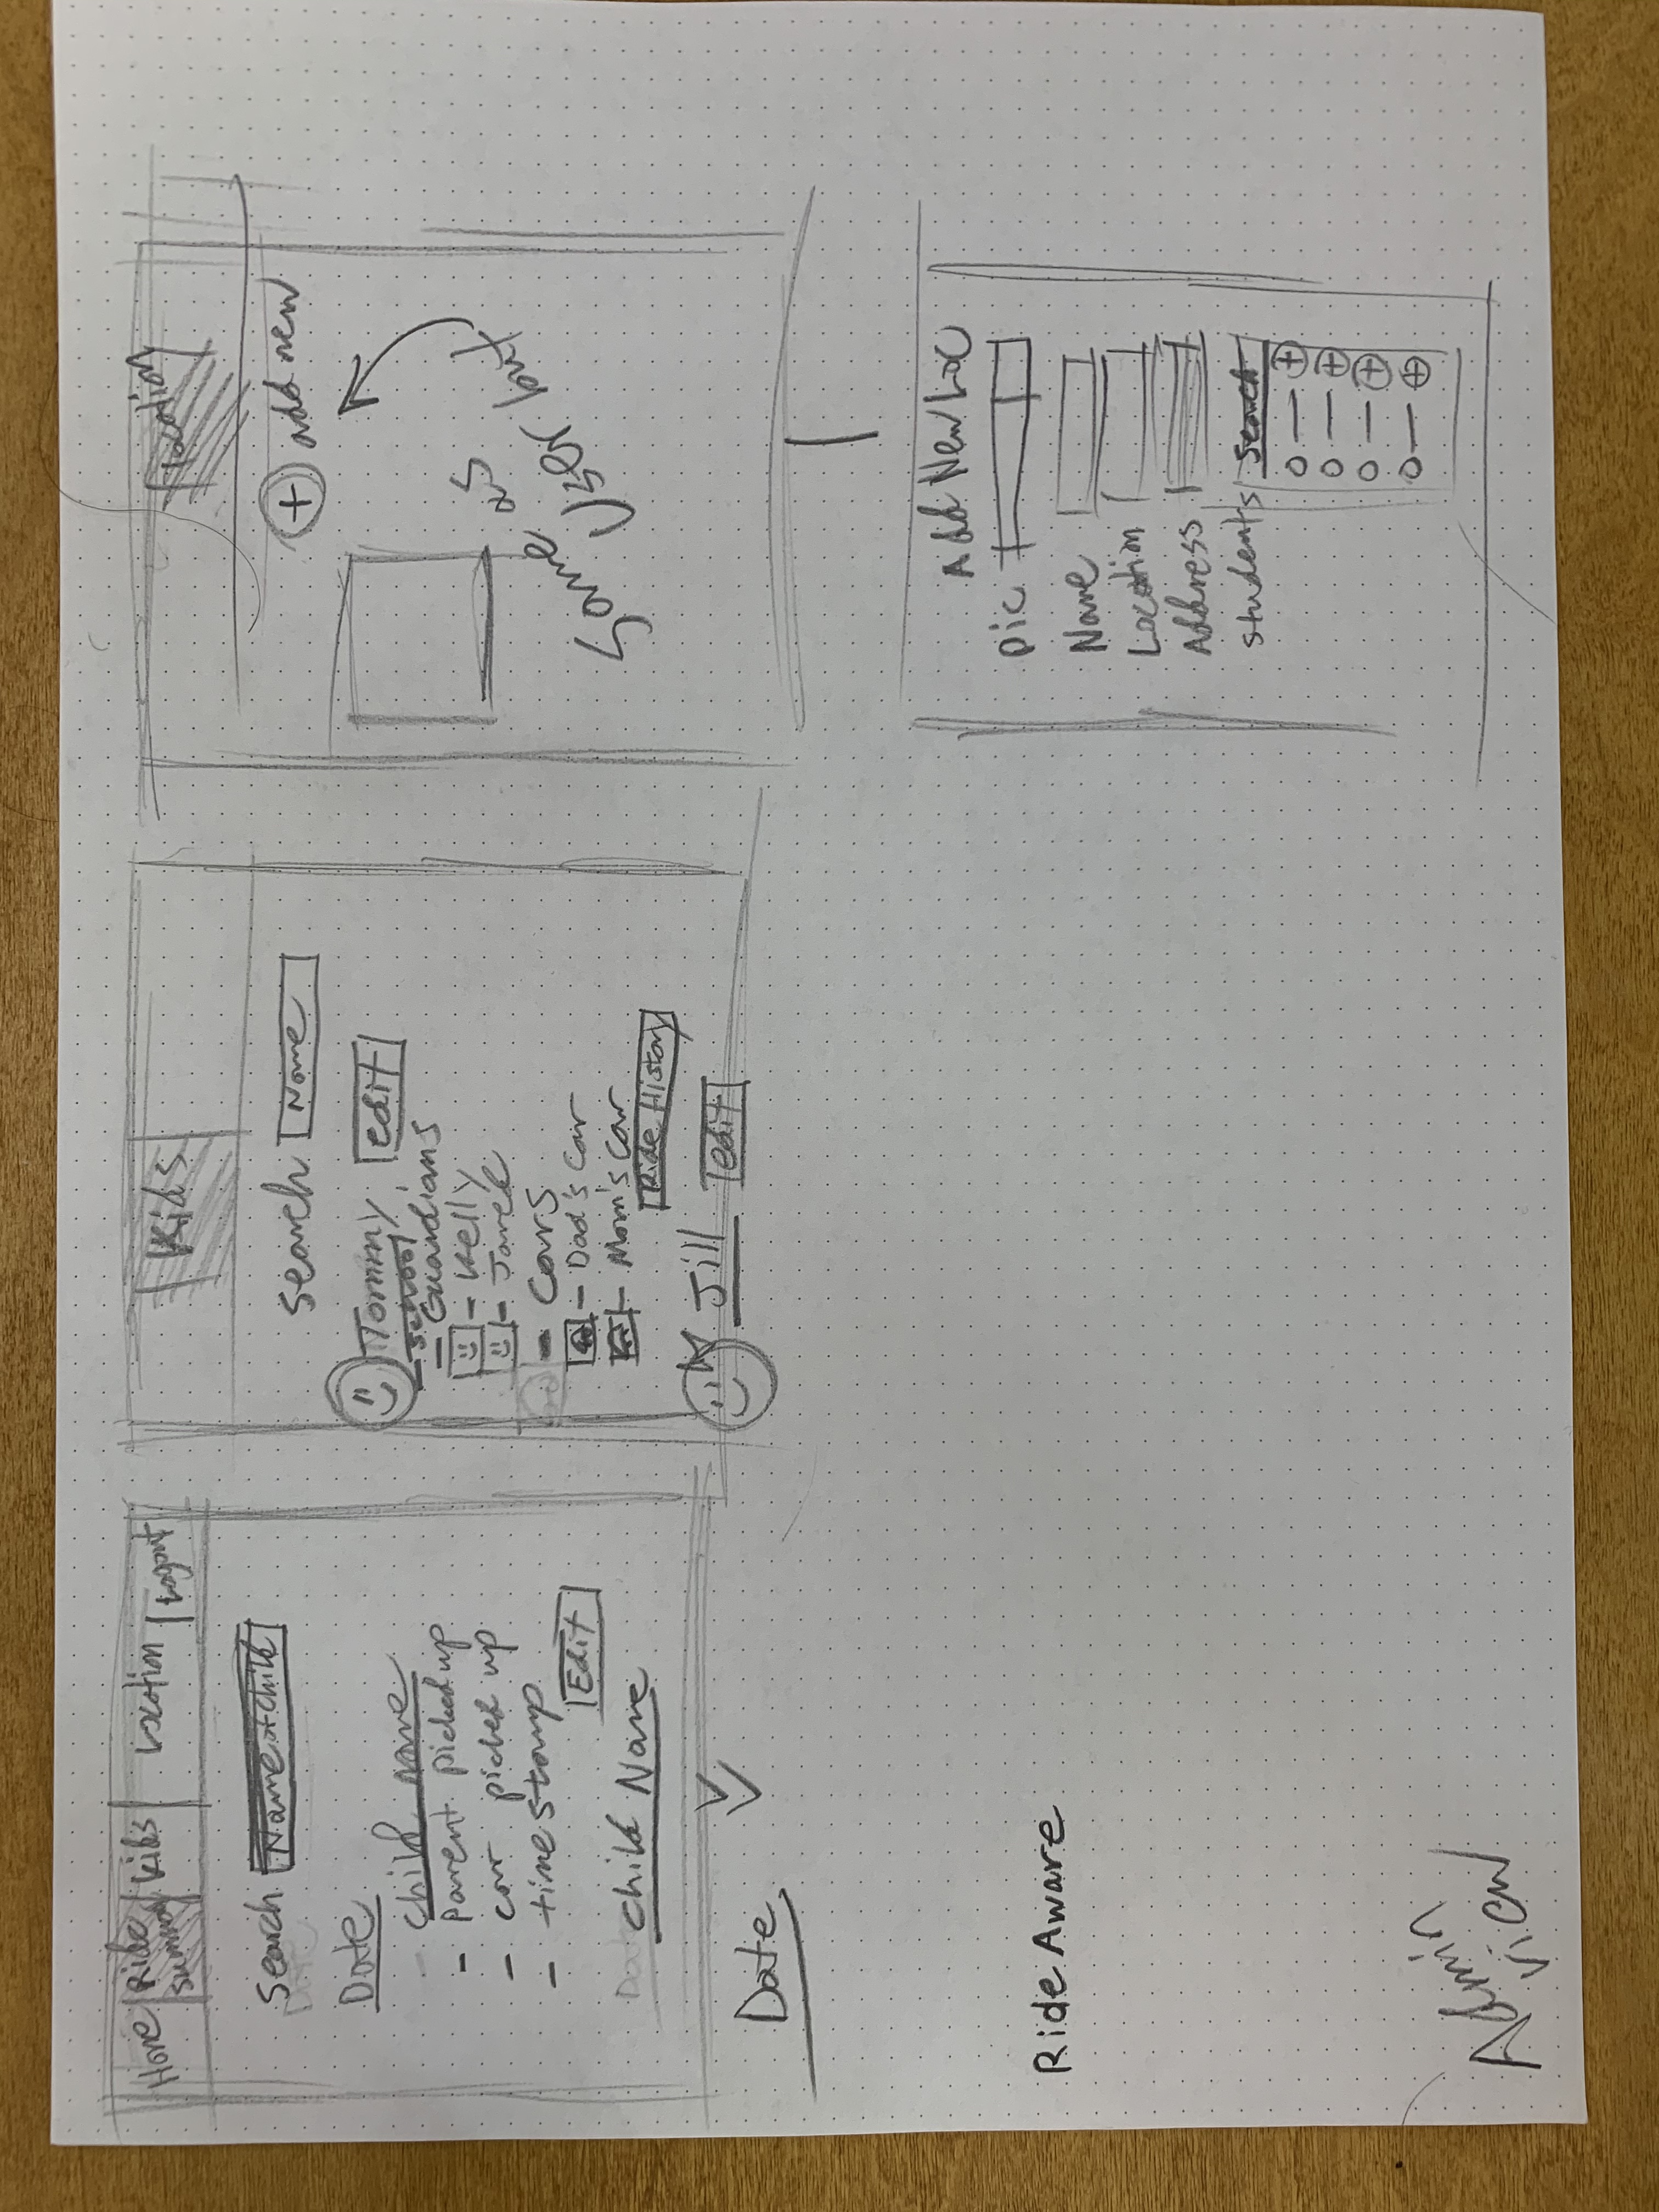 Home
Ride
Summary
Kids
Location
Logout
Search
Name of child
Date
Child name
- Parent picked up
- car picked up
- time stamp
Edit
Child Name
Date
Kids
Search
Name
Tommy
edit
- school
- Guardians
- Kelly
- Jane
- Cars
- Dad's Car
- Mom's Car
Ride History
Jill
edit
Location
+ add new
Same as
User
Add New Loc
Pic
Name
Location
Address
students
Search
Ride Aware
Admin
View